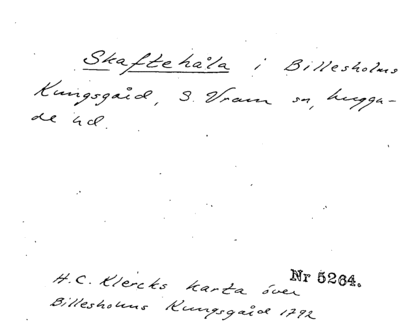 Skaftehåla i Billesholms
Kungsgård, S. Vram sn, Luggude
hd.
Nr 5264.
H.C. Klercks karta över
Billesholms Kungsgård 1792